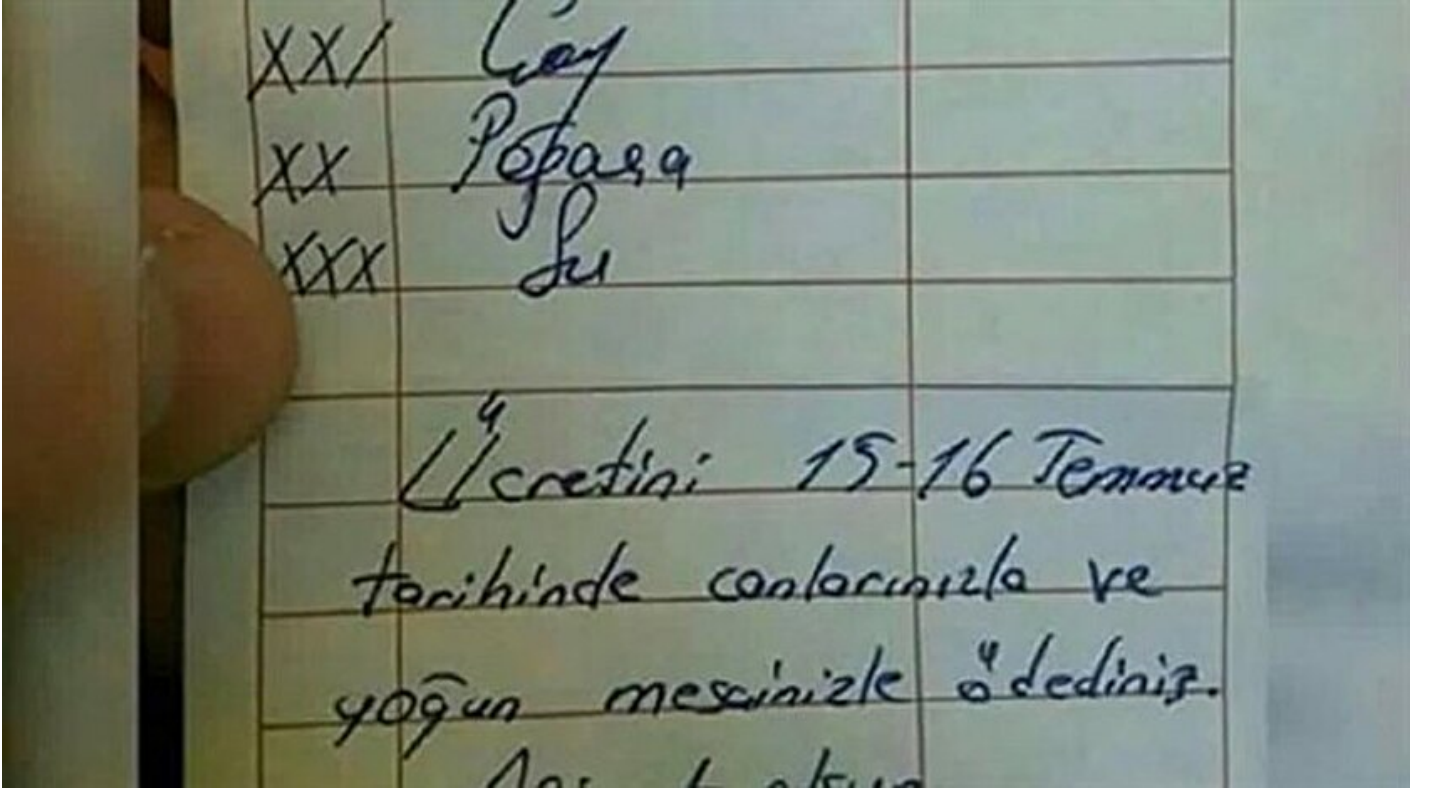 XX/ Çay
XX Poğaça
XXX Su
Ücretini 15-16 Temmuz
tarihinde canlarınızla ve
yoğun mesainizle ödediniz.